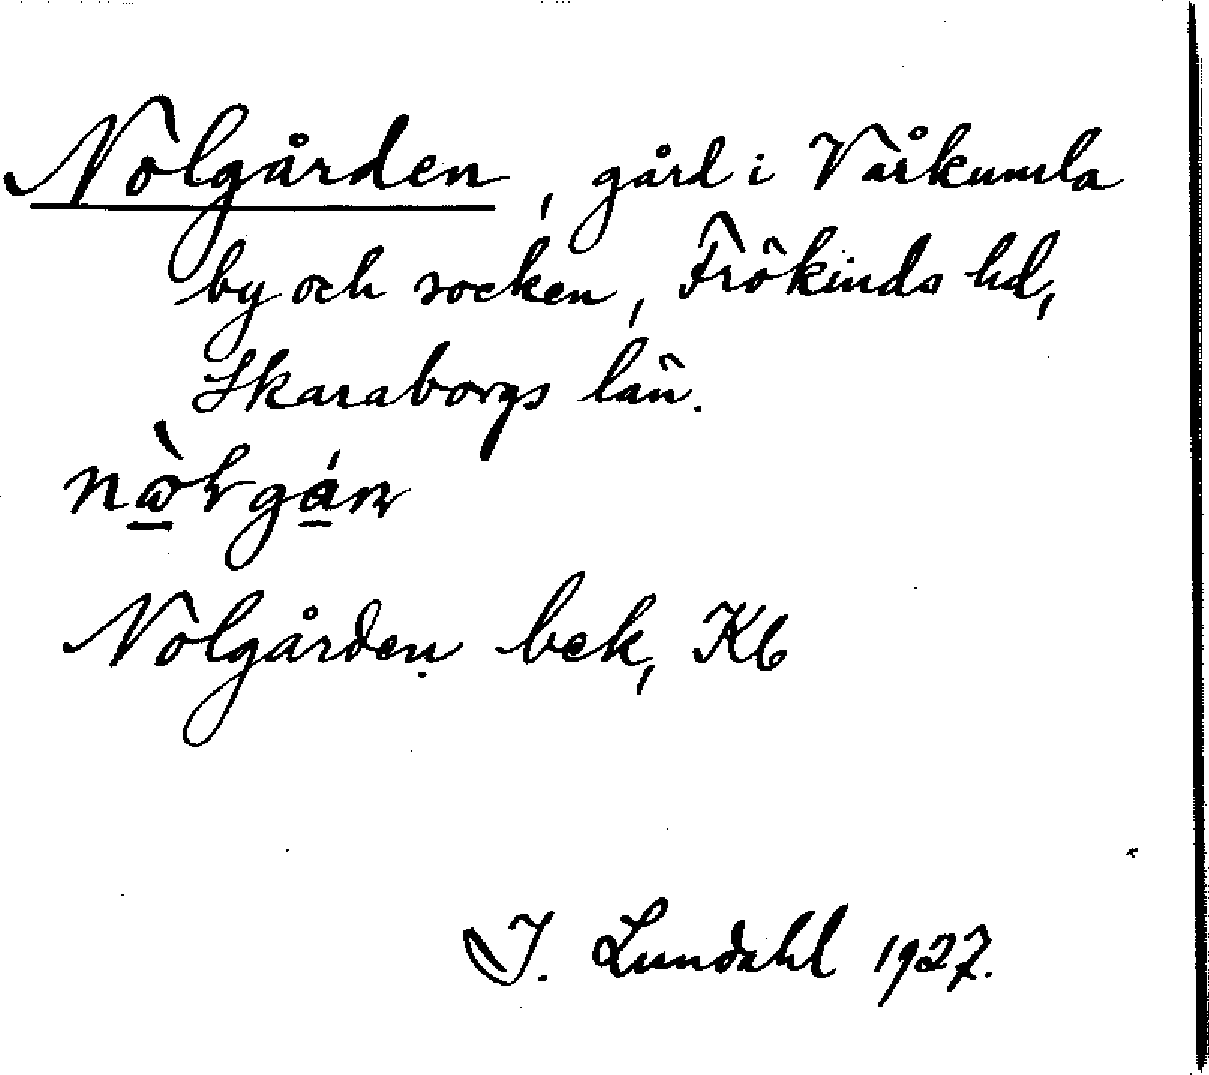 Nolgården, gård i Vårkumla
by och socken, Frökinds hd,
Skaraborgs län.
Nolgården bek, Kb
I. Lundahl 1927.